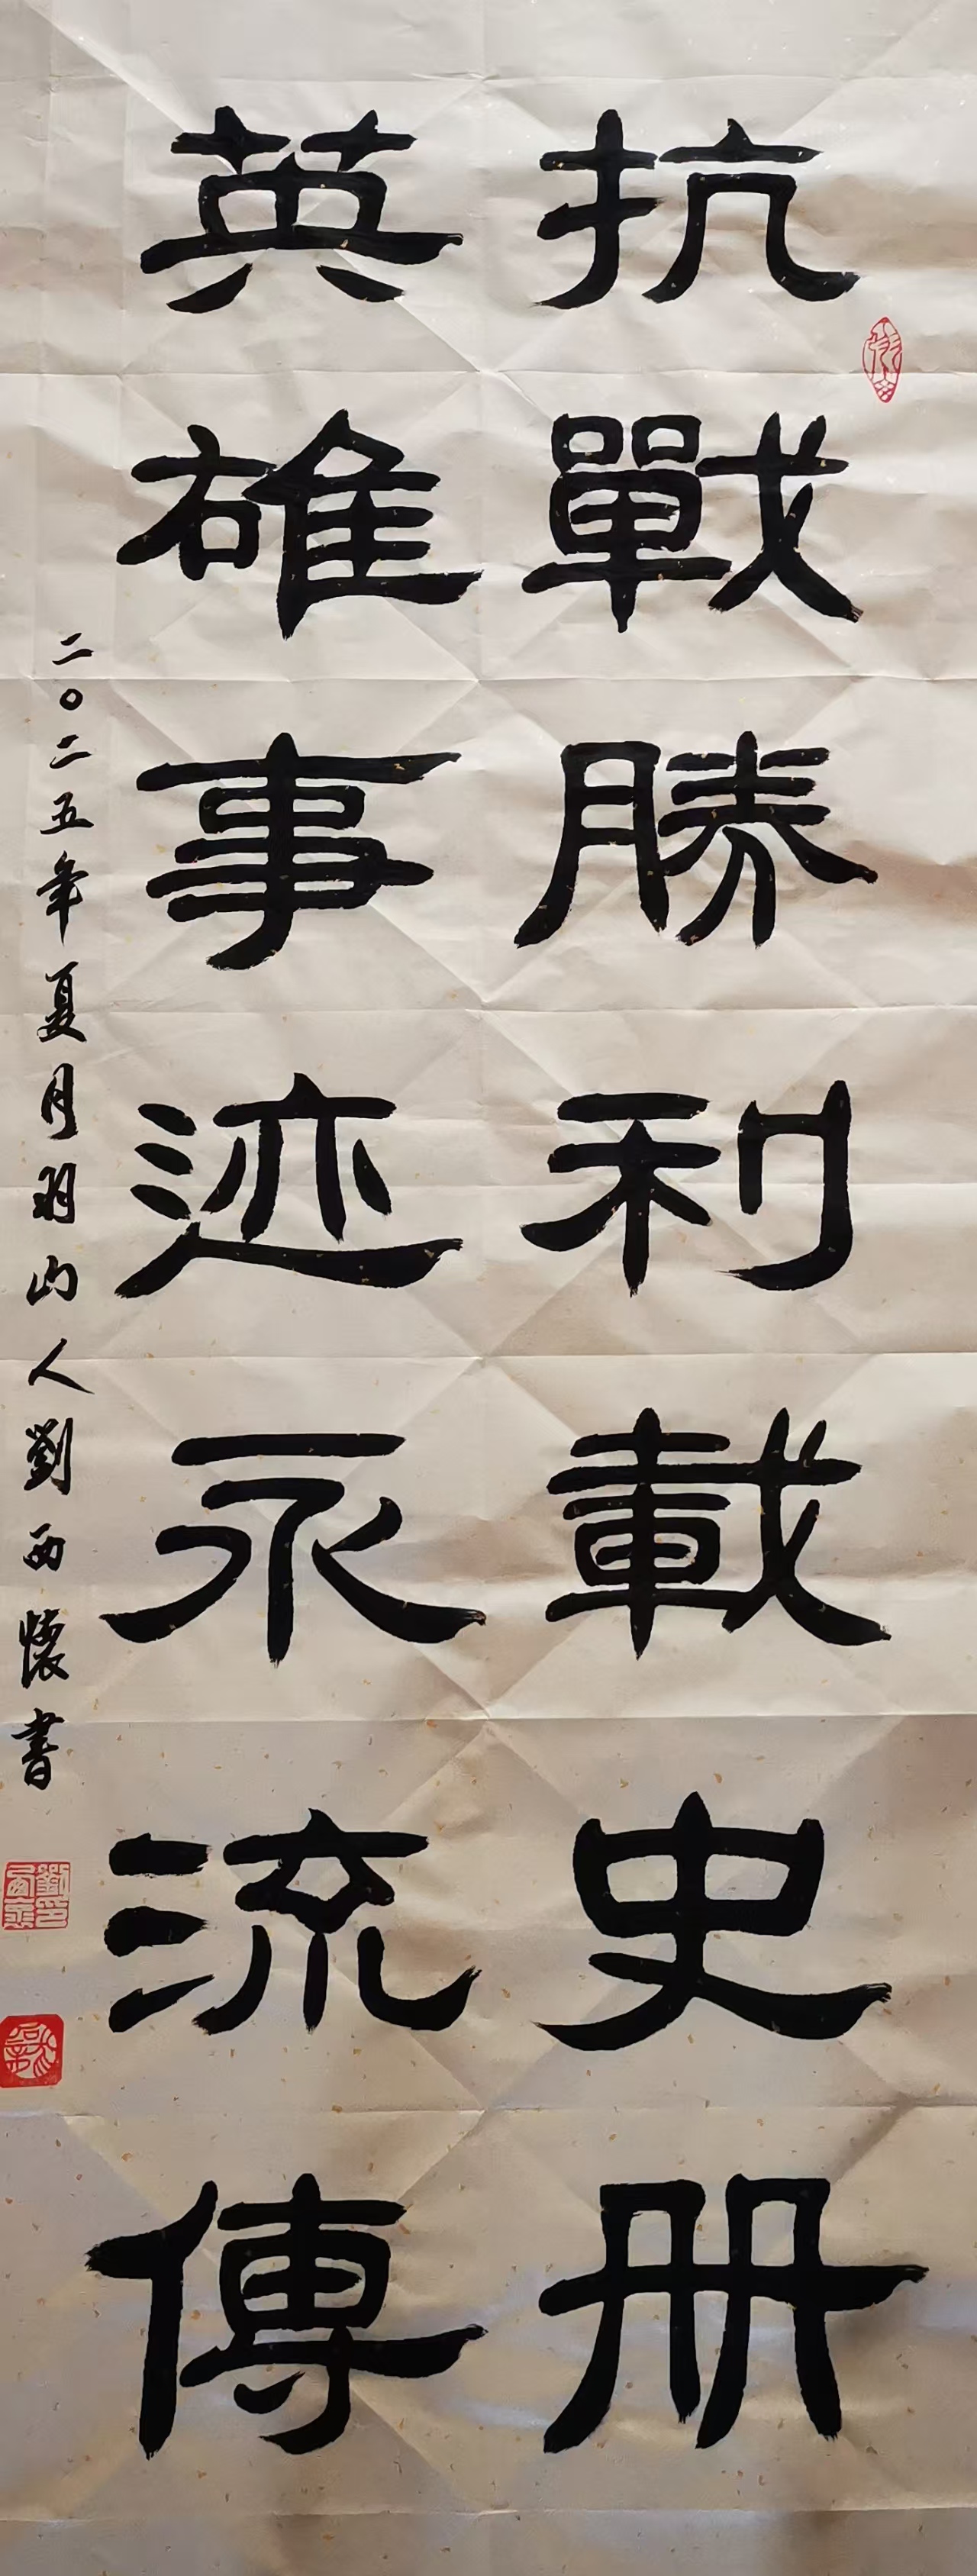 抗戰勝利載史册
英雄事迹永流傳
二〇二五年夏月羽山人劉西懷書